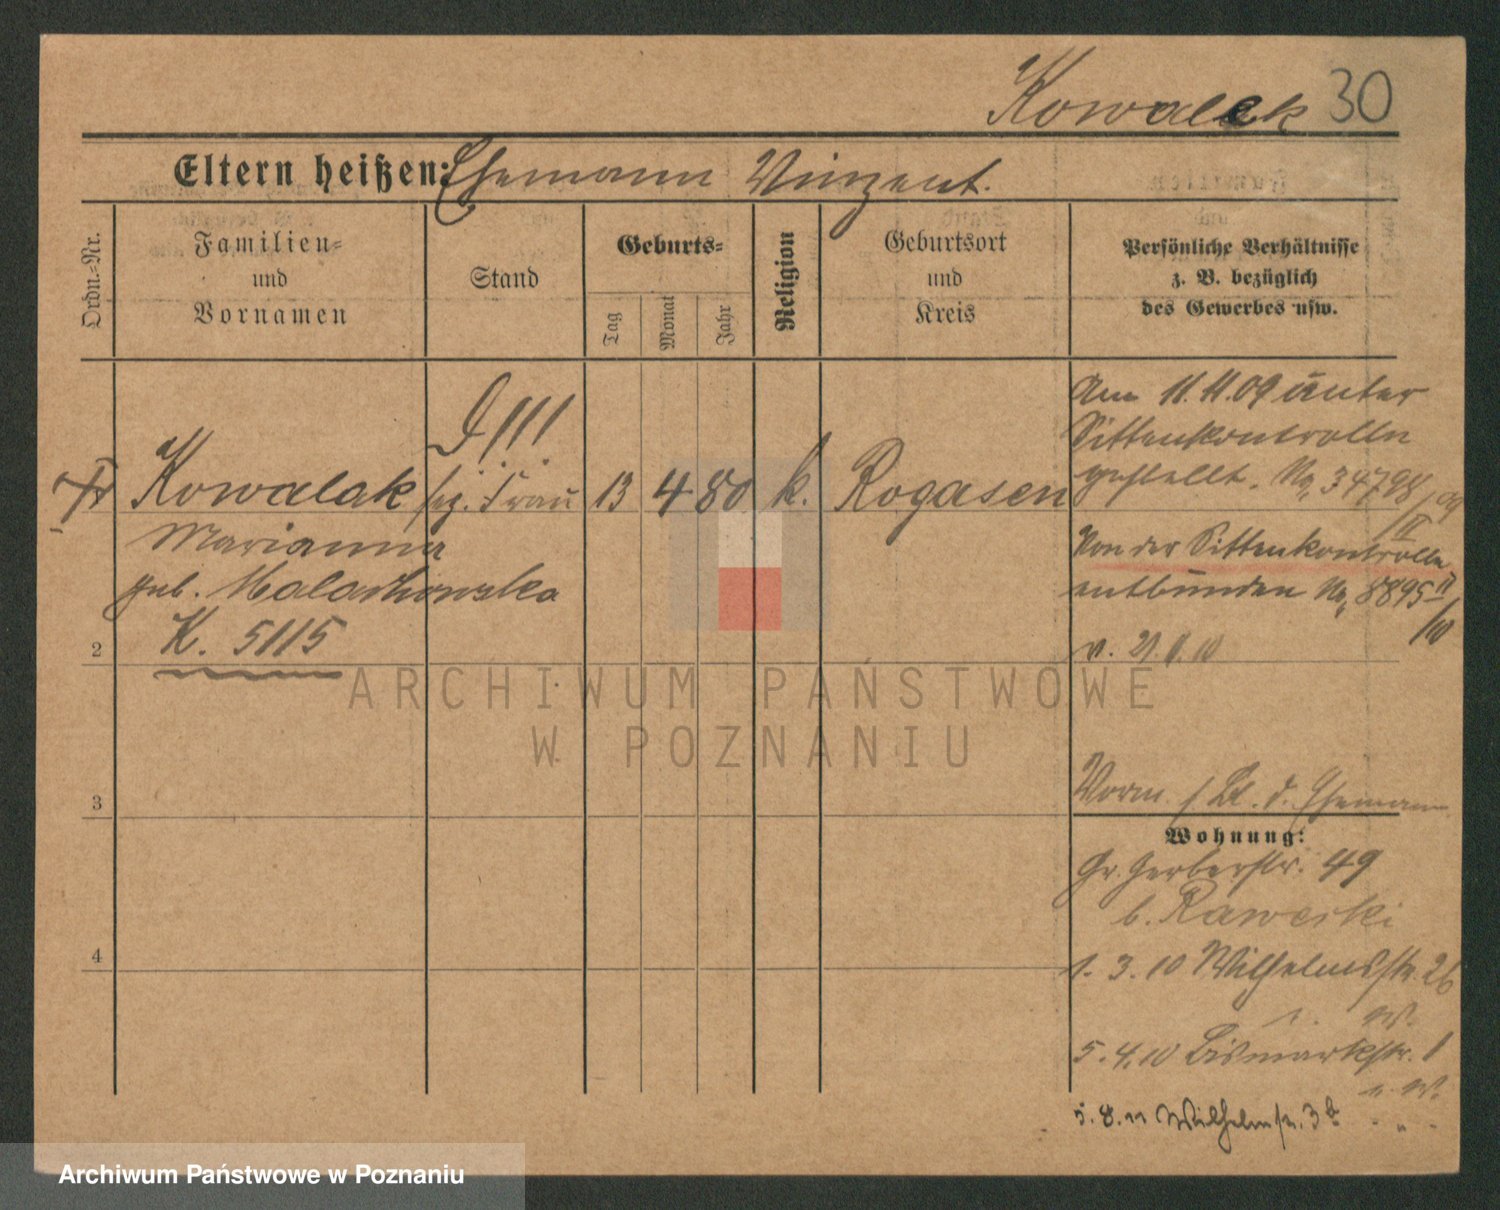 Kowalek 30
Eltern heißen: Ehemann Vinzent.
Ordn.=Nr.
Familien=
und
Vornamen
Stand
Geburts=
Tag
Monat
Jahr
Religion
Geburtsort
und
Kreis
Persönliche Verhältnisse
z. B. bezüglich
des Gewerbes usw.
Fr Kowalak
Marianna
geb. Malachowska
K. 5115
III
sep. Frau
13 4 80 k. Rogasen
Am 11.11.09 unter
Sittenkontrolle
gestellt. No 34798/09
III
Von der Sittenkontrolle
entbunden No 8895 II
/10
v. 21.2.10
2
3
4
Vorm. d. Ehemann
Wohnung:
Gr. Gerberstr. 49
b. Rawerski
1. 3. 10 Wilhelmsstr. 26
5. 4. 10 Bismarkstr. 1
5. 8. 11 Wilhelmstr. 3b
ARCHIWUM PAŃSTWOWE
W POZNANIU
Archiwum Państwowe w Poznaniu